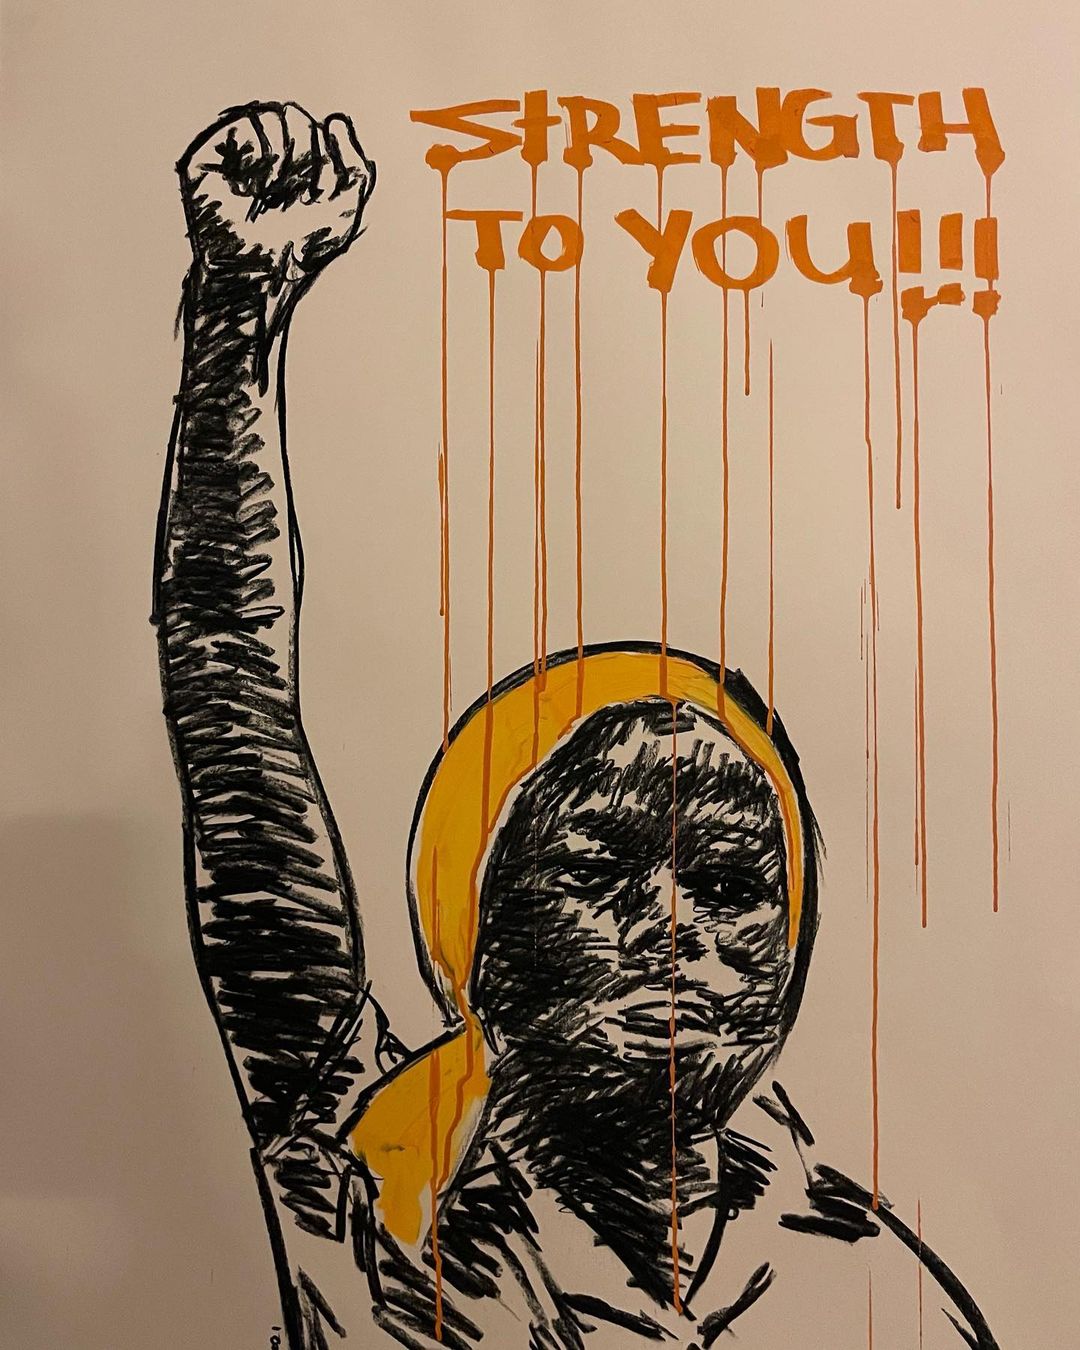 STRENGTH
TO YOU!!!